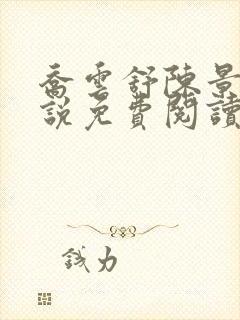 喬雲舒陳景
說免費閱讀
錢力